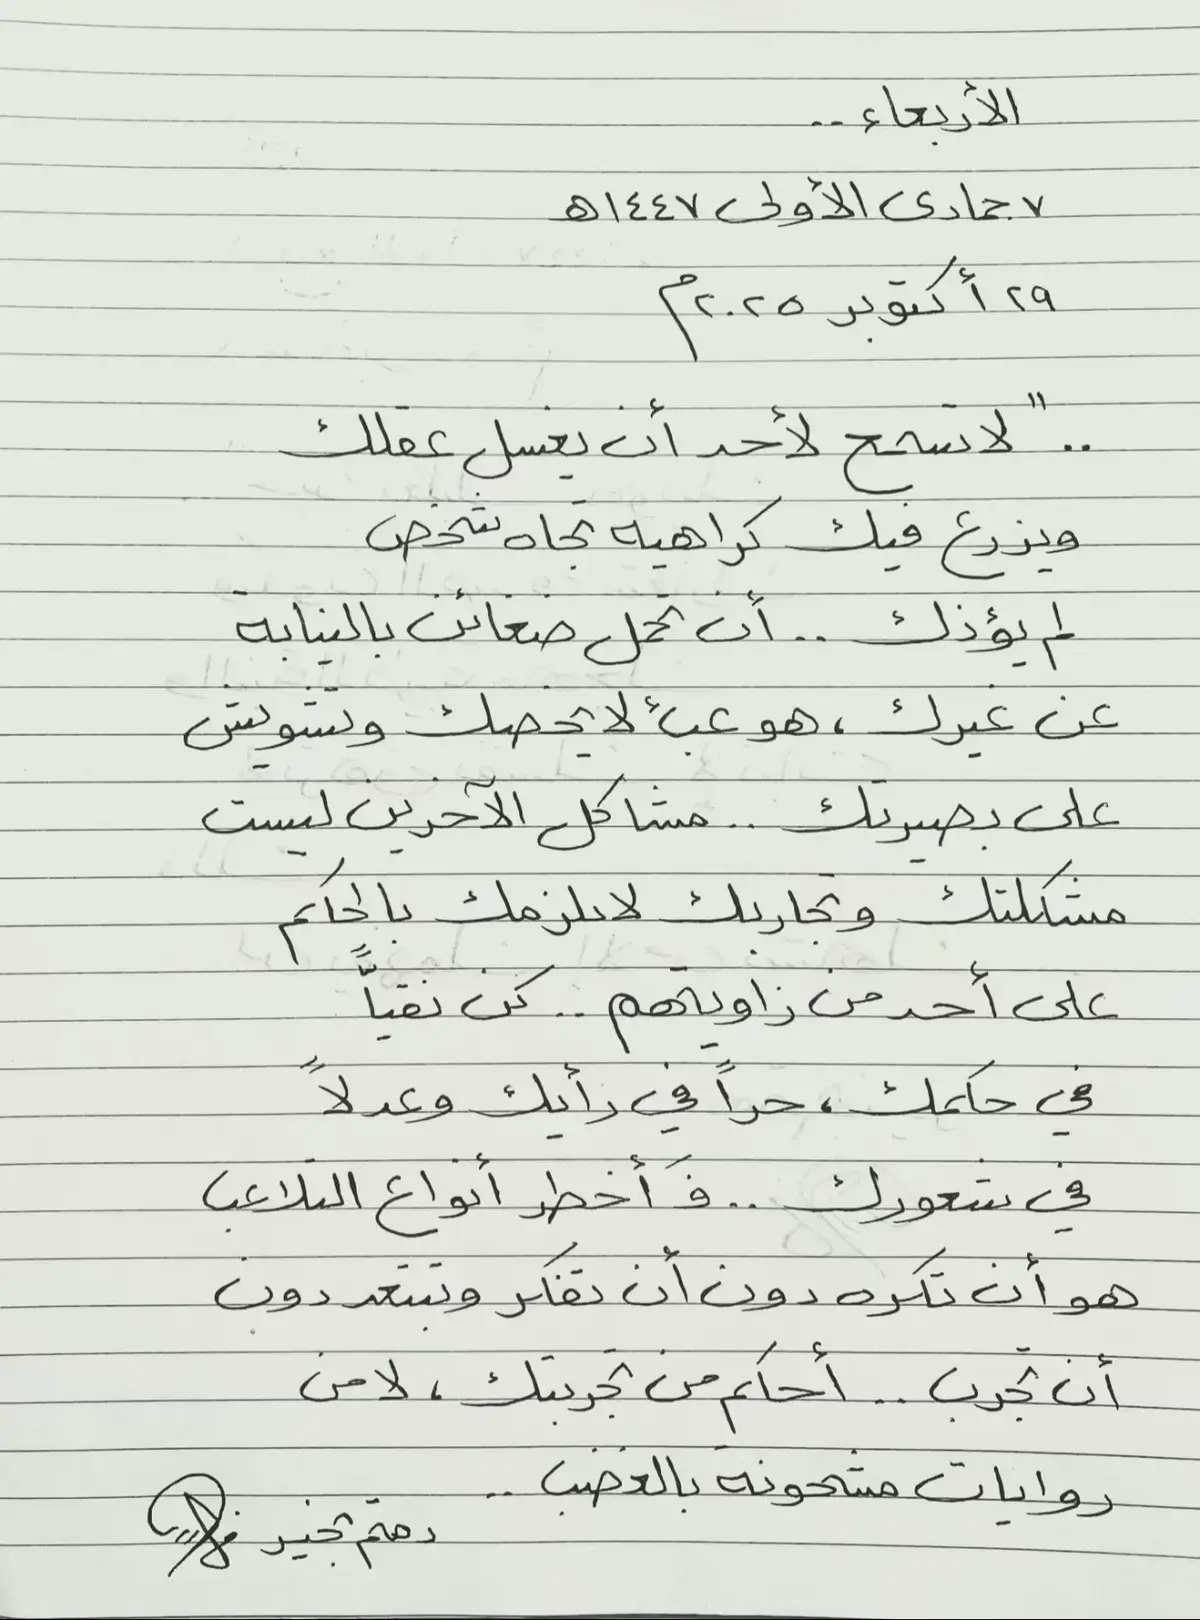 الأربعاء ..
٧ جمادى الأولى ١٤٤٧هـ
٢٩ أكتوبر ٢٠٢٥م
.. " لا تسمح لأحد أن يغسل عقلك
ويزرع فيك كراهيه تجاه شخص
لم يؤذك .. أن تحمل ضغائن بالنيابة
عن غيرك ، هو عبئ لا يخصك وتشويش
على بصيرتك .. مشاكل الآخرين ليست
مشكلتك وتجاربك لا تلزمك بالحكم
على أحد من زاويتهم .. كن نقياً
في حكمك ، حراً في رأيك وعدلاً
في شعورك .. فـَ أخطر أنواع التلاعب
هو أن تكره دون أن تفكر وتبتعد دون
أن تجرب .. أحكم من تجربتك ، لا من
روايات مشحونة بالغضب ..
دمتم بخير